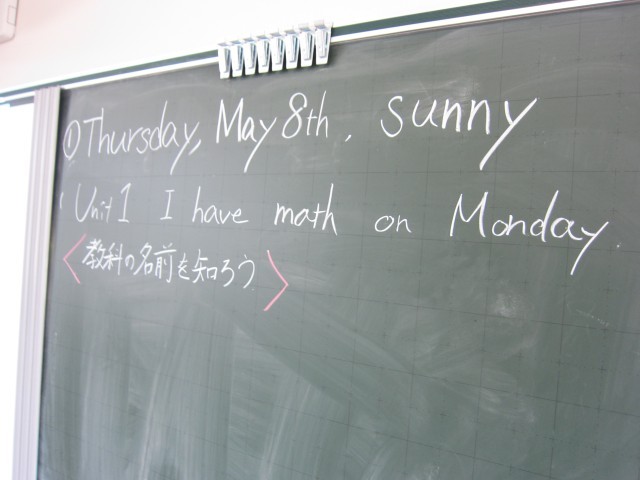 ① Thursday, May 8th, sunny
Unit 1 I have math on Monday.
〈教科の名前を知ろう〉